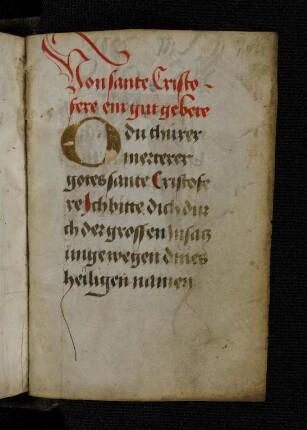 Von sante Cristo-
fere ein gut gebete
O du thurer
merterer
gotes sante Cristofe
re Ich bitte dich dur
ch der grossen
ungewegen dines
heiligen namen